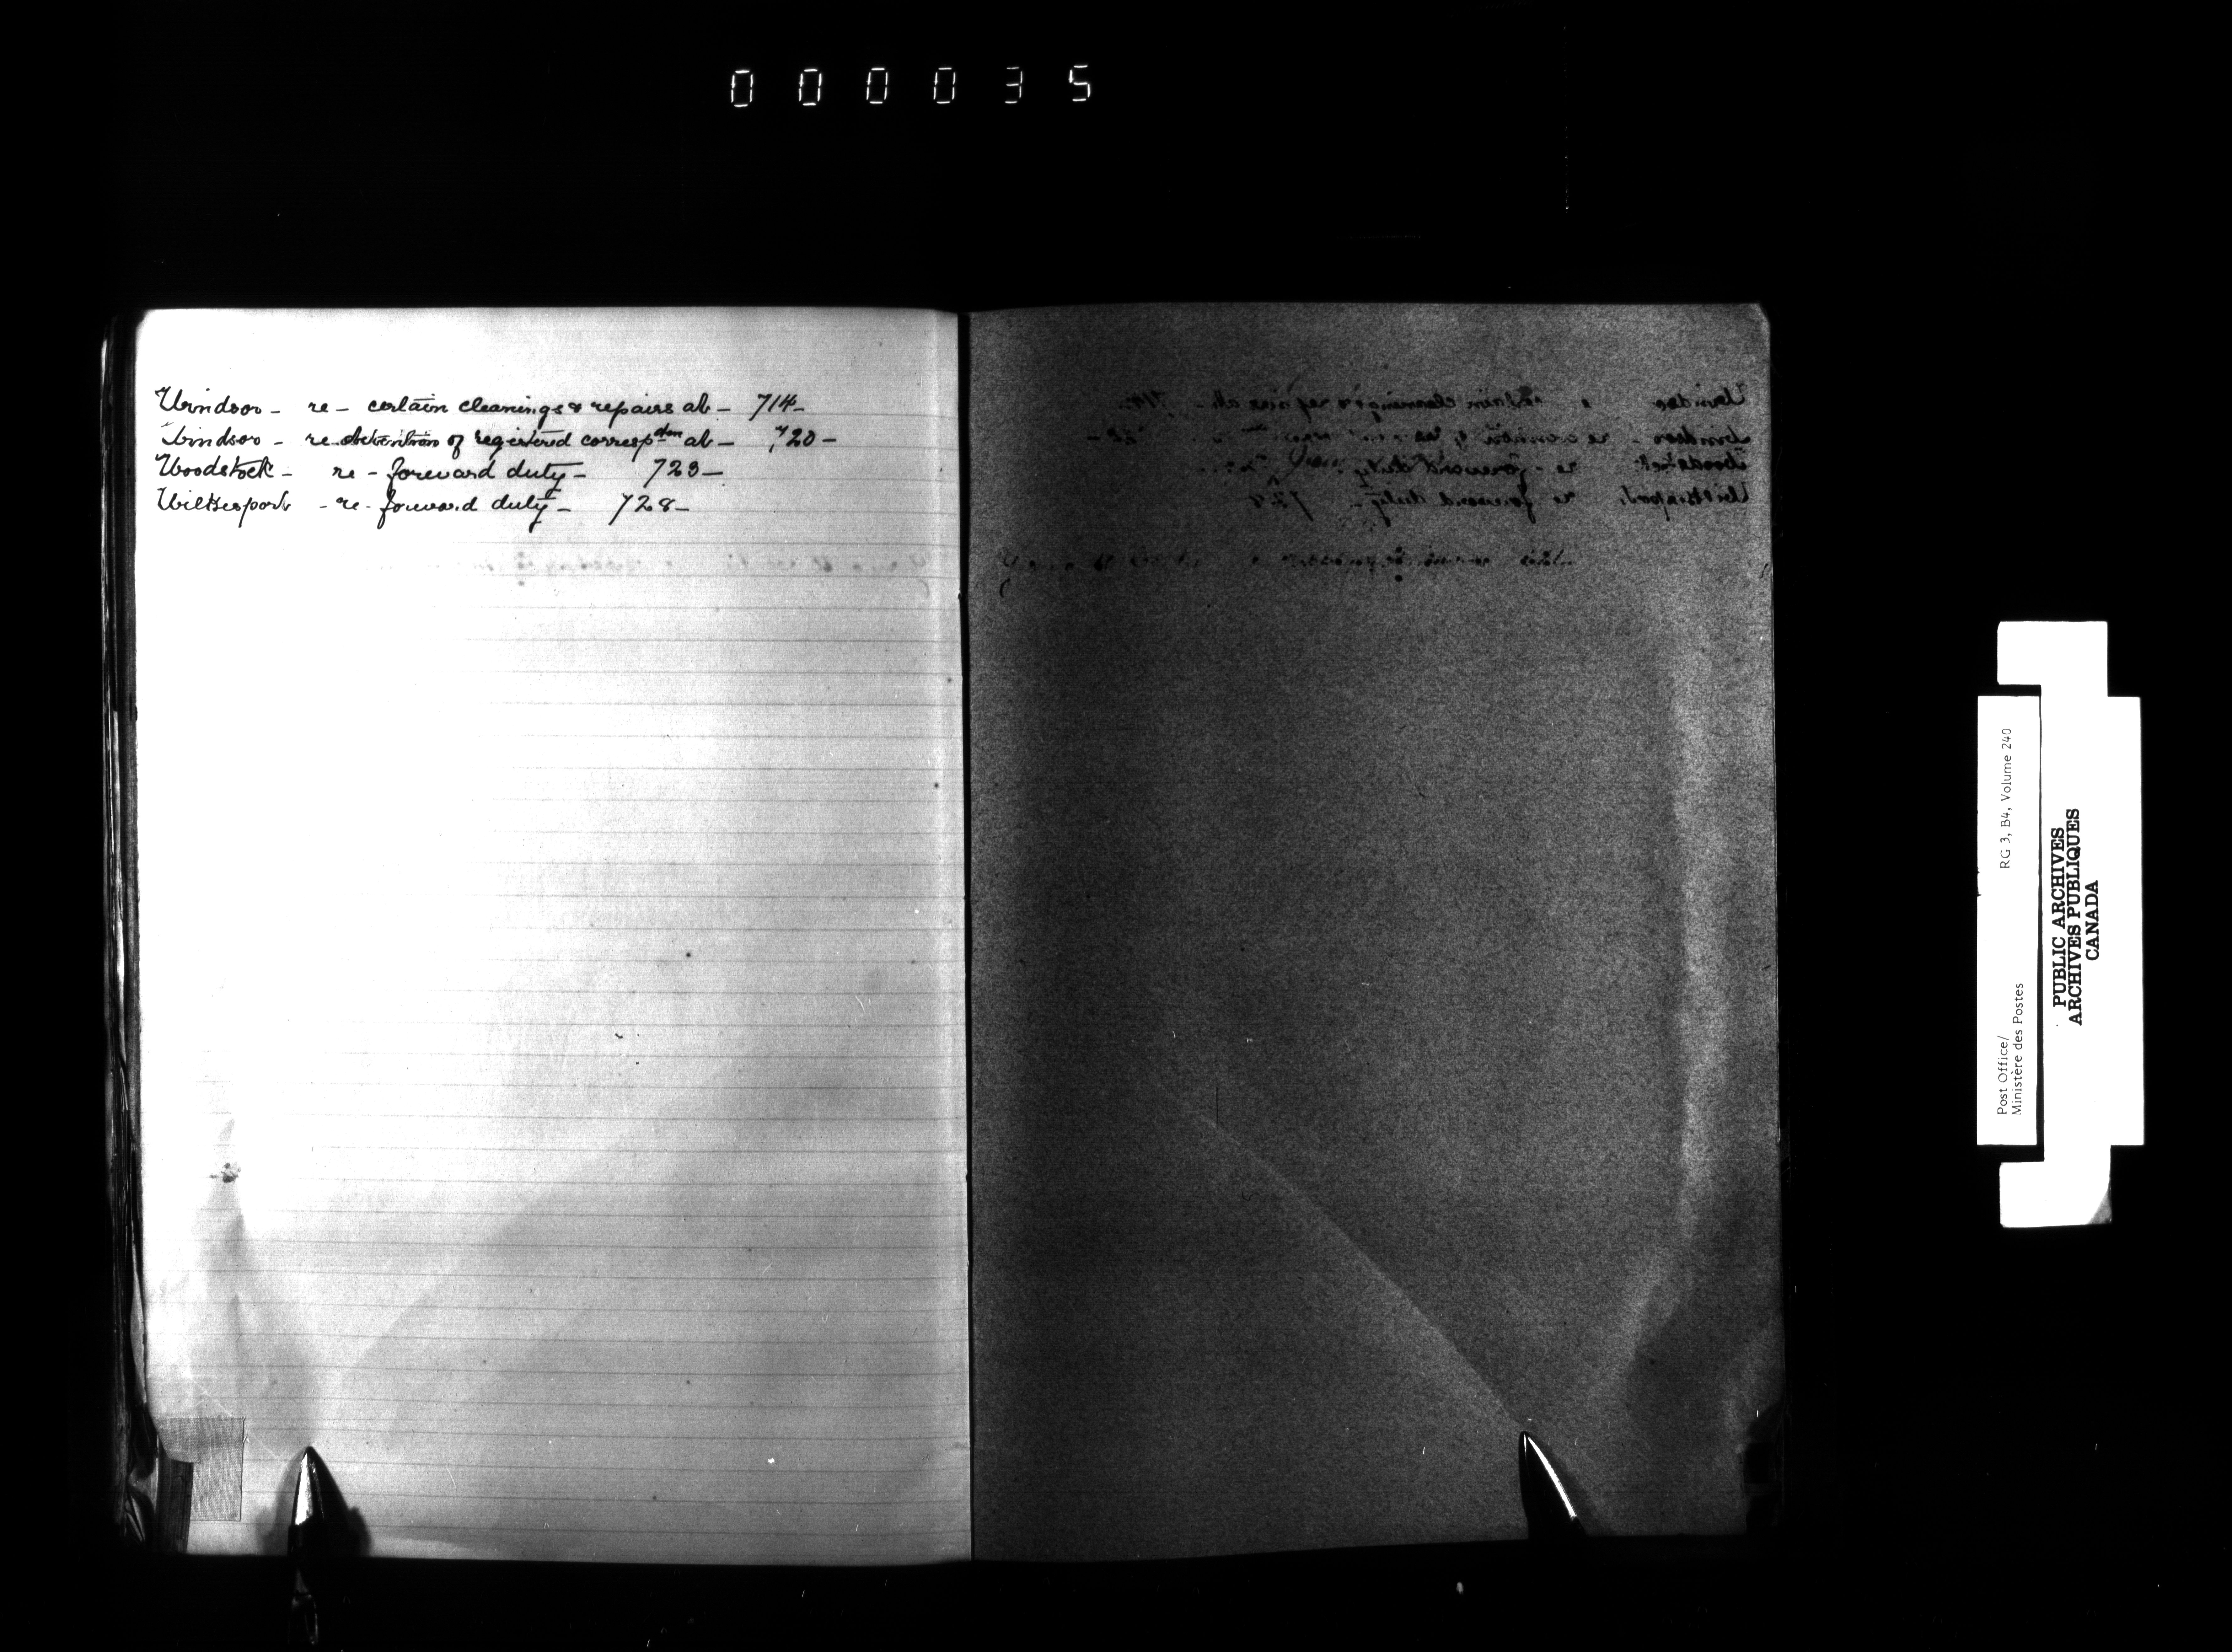 000035
Windsor - re - certain cleanings & repairs at - 714 -
Windsor - re detention of registered correspden at - 720 -
Woodstock - re - forward duty - 723 -
Wilkesport - re - forward duty - 728 -
Post Office/ RG 3, B4, Volume 240
Ministère des Postes
PUBLIC ARCHIVES
ARCHIVES PUBLIQUES
CANADA